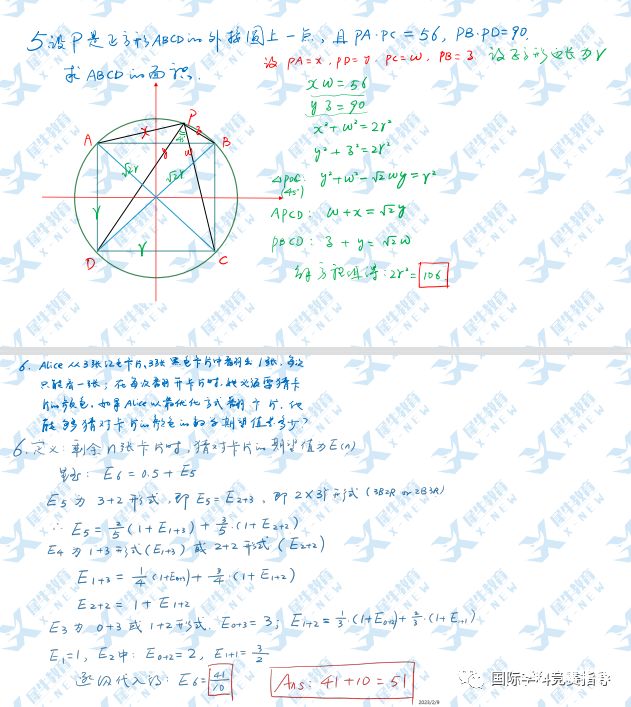 5.设P是正方形ABCD的外接圆上一点,且PA·PC=56, PB·PD=90.
求ABCD的面积.
设PA=x, PD=y, PC=w, PB=z. 设正方形边长为r
xw=56
yz=90
x²+w²=2r²
y²+z²=2r²
△PDC: y²+w²-√2wy=r²
(45°)
APCD: w+x=√2y
PBCD: z+y=√2w
解方程组得:2r²=106
A
B
C
D
P
x
z
y
w
√2r
√2r
r
r
6. Alice从3张红色卡片、3张黑色卡片中翻出1张,每次
只能翻一张;在每次翻开卡片时,她必须要猜卡
片的颜色.如果Alice以最优化方式翻卡片,他
能够猜对卡片的颜色的数的期望值是多少?
6.定义:剩余n张卡片时,猜对卡片的期望值为E(n)
显然: E6=0.5+E5
E5为 3+2形式,即E5=E2+3,即2X3Y形式(3B2R or 2B3R)
∴ E5=2/5(1+E1+3)+3/5·(1+E2+2)
E4为1+3形式(E1+3)或2+2形式(E2+2)
E1+3=1/4(1+E0+3)+3/4·(1+E1+2)
E2+2=1+E1+2
E3为 0+3或1+2形式. E0+3=3; E1+2=1/3·(1+E0+2)+2/3·(1+E1+1)
E1=1, E2中: E0+2=2, E1+1=3/2
逐个代入得: E6=41/10
Ans: 41+10=51
国际学科竞赛指导
2023/2/9
犀牛教育
X-NEW